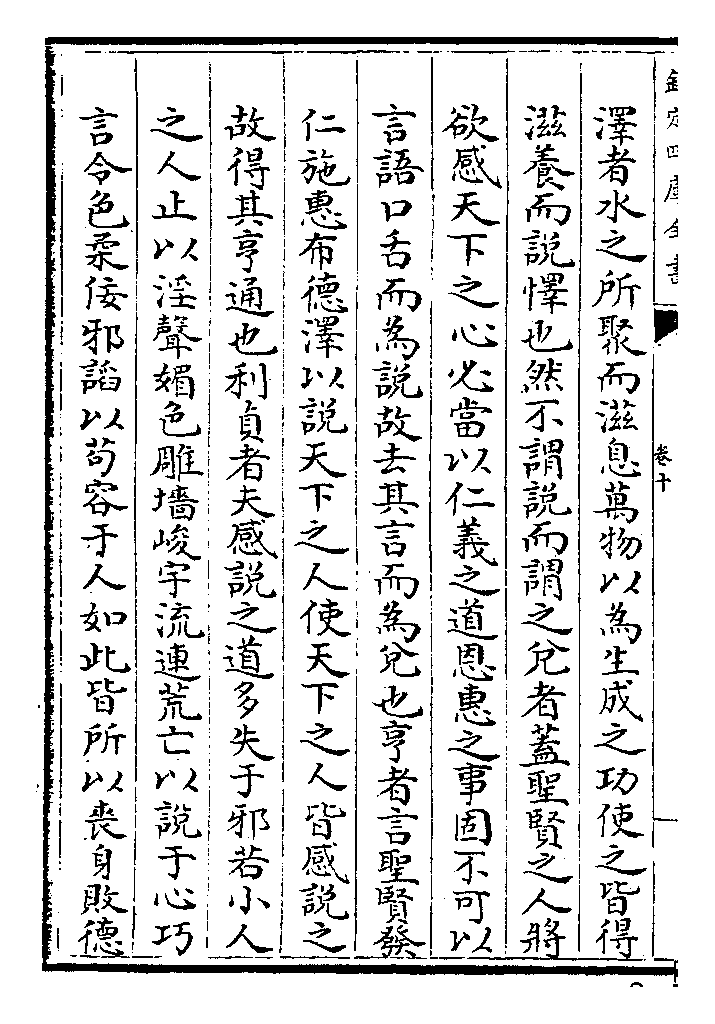 欽定四庫全書
卷十
澤者水之所聚而滋息萬物以為生成之功使之皆得
滋養而説懌也然不謂説而謂之兌者蓋聖賢之人將
欲感天下之心必當以仁義之道恩惠之事固不可以
言語口舌而為説故去其言而為兌也亨者言聖賢發
仁施惠布德澤以説天下之人使天下之人皆感説之
故得其亨通也利貞者夫感説之道多失于邪若小人
之人止以淫聲媚色雕墻峻宇流連荒亡以説于心巧
言令色柔佞邪謟以茍容于人如此皆所以喪身敗德